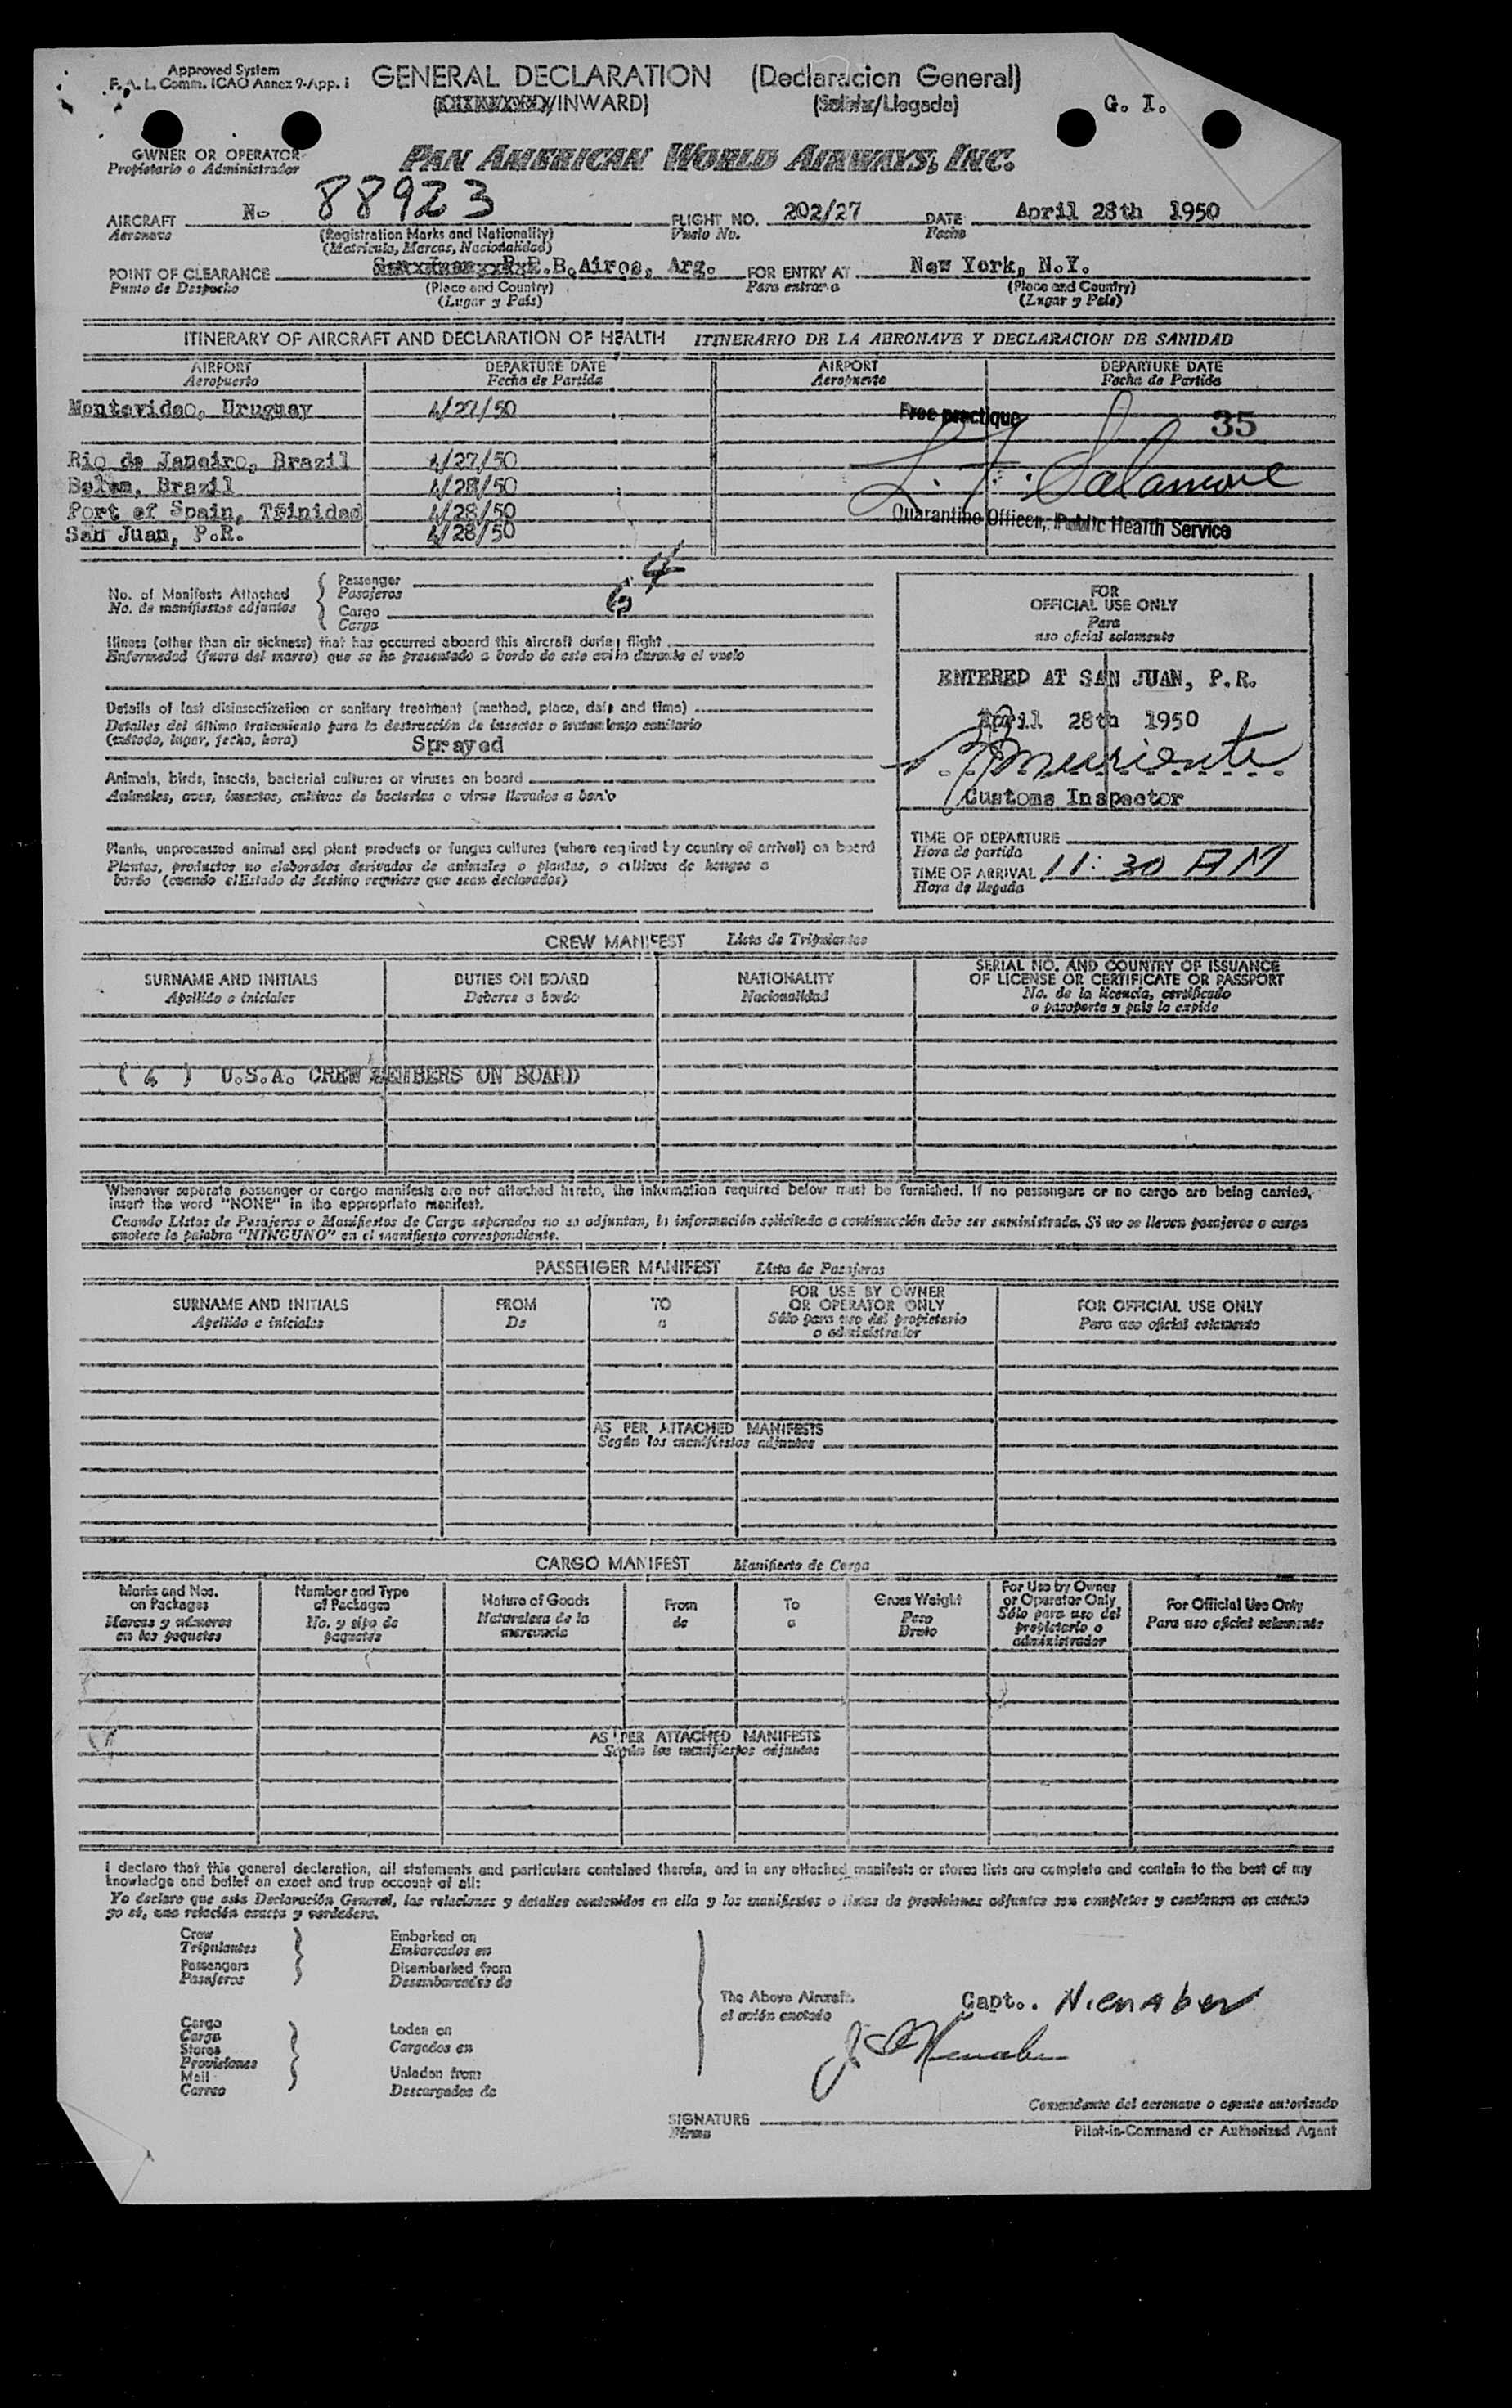 Approved System
F. A. L. Comm. ICAO Annex 9-App. i
GENERAL DECLARATION (Declaracion General)
(XXXXXXXX/INWARD) (Salida/Llegada)
G. I.
OWNER OR OPERATOR
Propietario o Administrador
PAN AMERICAN WORLD AIRWAYS, INC.
AIRCRAFT N- 88923 FLIGHT NO. 202/27 DATE April 28th 1950
Aeronave (Registration Marks and Nationality) Vuelo No. Fecha
(Matricula, Marcas, Nacionalidad)
POINT OF CLEARANCE B.Aires, Arg. FOR ENTRY AT New York, N.Y.
Punto de Despacho (Place and Country) Para entrar a (Place and Country)
(Lugar y País) (Lugar y País)
ITINERARY OF AIRCRAFT AND DECLARATION OF HEALTH ITINERARIO DE LA AERONAVE Y DECLARACION DE SANIDAD
AIRPORT DEPARTURE DATE AIRPORT DEPARTURE DATE
Aeropuerto Fecha de Partida Aeropuerto Fecha de Partida
Montevideo, Uruguay 4/27/50
Free practique 35
Rio de Janeiro, Brazil 4/27/50
Belem, Brazil 4/28/50
L. F. Salamone
Port of Spain, Tfinidad 4/28/50
Quarantine Officer, Public Health Service
San Juan, P.R. 4/28/50
No. of Manifests Attached
No. de manifiestos adjuntos
Passenger 4
Pasajeros
Cargo 6
Carga
Illness (other than air sickness) that has occurred aboard this aircraft during flight
Enfermedad (fuera del mareo) que se ha presentado a bordo de este avión durante el vuelo
Details of last disinsectization or sanitary treatment (method, place, date and time)
Detalles del último tratamiento para la destrucción de insectos o tratamiento sanitario
(método, lugar, fecha, hora) Sprayed
Animals, birds, insects, bacterial cultures or viruses on board
Animales, aves, insectos, cultivos de bacterias o virus llevados a bordo
Plants, unprocessed animal and plant products or fungus cultures (where required by country of arrival) on board
Plantas, productos no elaborados derivados de animales o plantas, o cultivos de hongos a
bordo (cuando el Estado de destino requiere que sean declarados)
FOR
OFFICIAL USE ONLY
Para
uso oficial solamente
ENTERED AT SAN JUAN, P.R.
April 28th 1950
Customs Inspector
TIME OF DEPARTURE
Hora de partida
TIME OF ARRIVAL 11:30 AM
Hora de llegada
CREW MANIFEST Lista de Tripulantes
SURNAME AND INITIALS DUTIES ON BOARD NATIONALITY SERIAL NO. AND COUNTRY OF ISSUANCE
OF LICENSE OR CERTIFICATE OR PASSPORT
Apellido e iniciales Deberes a bordo Nacionalidad No. de la licencia, certificado
o pasaporte y país lo expide
( 6 ) U.S.A. CREW MEMBERS ON BOARD
Whenever separate passenger or cargo manifests are not attached hereto, the information required below must be furnished. If no passengers or no cargo are being carried,
insert the word "NONE" in the appropriate manifest.
Cuando Listas de Pasajeros o Manifiestos de Carga separados no se adjuntan, la información solicitada a continuación debe ser suministrada. Si no se lleven pasajeros o carga
anotese la palabra "NINGUNO" en el manifiesto correspondiente.
PASSENGER MANIFEST Lista de Pasajeros
SURNAME AND INITIALS FROM TO FOR USE BY OWNER
OR OPERATOR ONLY FOR OFFICIAL USE ONLY
Apellido e iniciales De a Sólo para uso del propietario
o administrador Para uso oficial solamente
AS PER ATTACHED MANIFESTS
Según los manifiestos adjuntos
CARGO MANIFEST Manifiesto de Carga
Marks and Nos.
on Packages
Marcas y números
en los paquetes
Number and Type
of Packages
No. y tipo de
paquetes
Nature of Goods
Naturaleza de la
mercancía
From
de
To
a
Gross Weight
Peso
Bruto
For Use by Owner
or Operator Only
Sólo para uso del
propietario o
administrador
For Official Use Only
Para uso oficial solamente
AS PER ATTACHED MANIFESTS
Según los manifiestos adjuntos
I declare that this general declaration, all statements and particulars contained therein, and in any attached manifests or stores lists are complete and contain to the best of my
knowledge and belief an exact and true account of all:
Yo declaro que esta Declaración General, las relaciones y detalles contenidos en ella y los manifiestos o listas de provisiones adjuntos son completos y contienen en cuánto
yo sé, una relación exacta y verdadera.
Crew
Tripulantes
Passengers
Pasajeros
Embarked on
Embarcados en
Disembarked from
Desembarcados de
Cargo
Carga
Stores
Provisiones
Mail
Correo
Laden on
Cargados en
Unladen from
Descargados de
The Above Aircraft.
el avión anotado
Capt.. Nienaber
SIGNATURE
Firma
Comandante del aeronave o agente autorizado
Pilot-in-Command or Authorized Agent